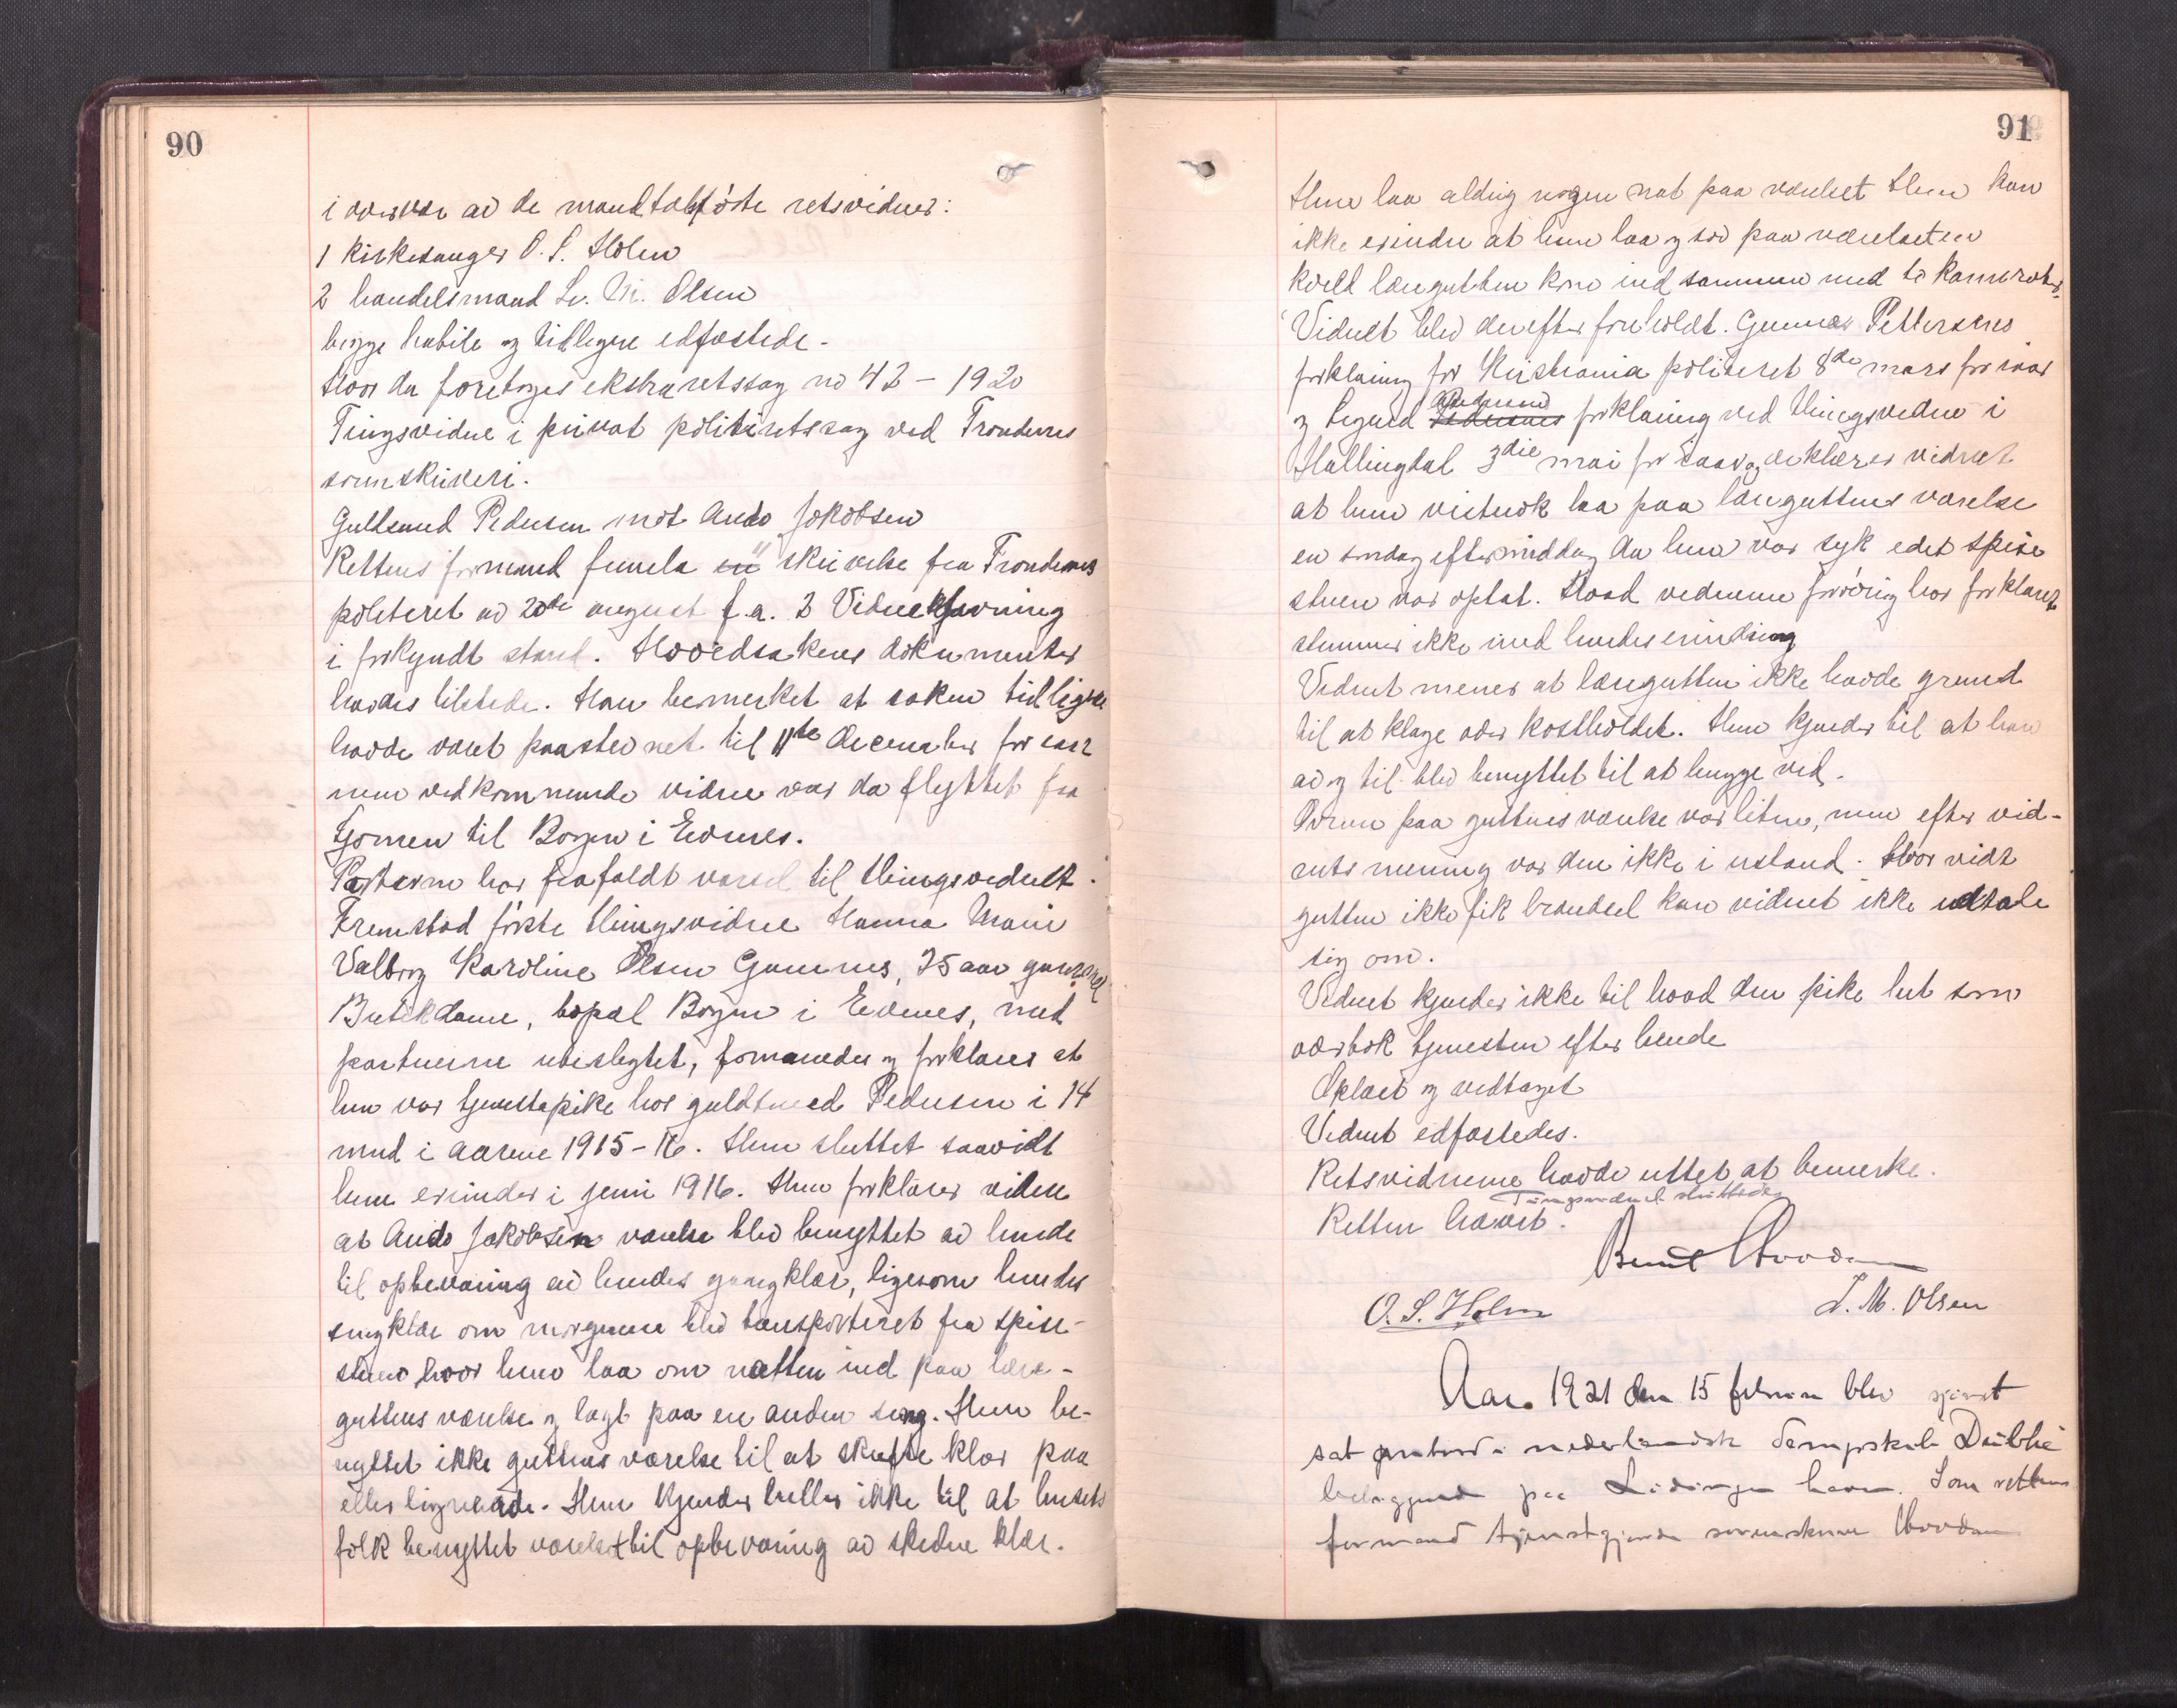 90
i overvær av de mandtalsførte retsvidner:
1 Kirkesanger O. S. Holm
2 handelsmand L. M. Olsen
begge habile og tidligere edfæstede.
Hvor da foretoges ekstraretssag no 42 - 1920
Tingsvidne i privat politiretssag ved Trondenes
sorenskriveri.
Guldsmed Pedersen mot Ando Jakobsen
Rettens formand fremla en skrivelse fra Trondenes
politiret av 20de august f.a. 2 Vidnestevning
i forkyndt stand. Hovedsakens dokumenter
havdes tilstede. Han bemerket at saken tidligere
havde været paastevnet til 11te december for iaar
men vedkommende vidne var da flyttet fra
til Bogen i Evenes.
Parterne har frafaldt varsel til thingsvidnet.
Fremstod første thingsvidne Hanna Marie
Valborg Karoline Olsen Gamnes, 25 aar gammel
Butikdame, bopæl Bogen i Evenes, med
parterne ubeslegtet, formanedes og forklarer at
hun var tjenestepike hos guldsmed Pedersen i 14
mnd i aarene 1915-16. Hun sluttet saavidt
hun erindrer i juni 1916. Hun forklarer videre
at Ando Jakobsen værelse blev benyttet av hende
til opbevaring av hendes gangklær, ligesom hendes
sengklær om morgenen blev transporteret fra spise-
stuen hvor hun laa om natten ind paa lære-
guttens værelse og lagt paa en anden seng. Hun be-
nyttet ikke guttens værelse til at skifte klær paa
eller lignende. Hun kjender heller ikke til at husets
folk benyttet værelset til opbevaring av skidne klær.
91
Hun laa aldrig nogen nat paa værelset Hun kan
ikke erindre at hun laa og sov paa værelset en
kveld læregutten kom ind sammen med to kamerater.
Vidnet blev derefter foreholdt Gunnar Pettersens
forklaring for Kristiania politiret 8de mars for iaar
og Sigurd Pedersens Andersens forklaring ved thingsvidne i
Hallingdal 3die mai for iaar og erklærer vidnet
at hun vistnok laa paa læreguttens værelse
en søndag eftermiddag da hun var syk og det spise
stuen var optat. Hvad vidnerne forøvrig har forklaret
stemmer ikke med hendes erindring
Vidnet mener at læregutten ikke havde grund
til at klage over kostholdet. Hun kjender til at han
av og til blev benyttet til at hugge ved.
Ovnen paa guttens værelse var liten, men efter vid-
nets mening var den ikke i ustand. Hvorvidt
gutten ikke fik brændsel kan vidnet ikke udtale
sig om.
Vidnet kjender ikke til hvad den pike het som
overtok tjenesten efter hende
Oplæst og vedtaget
Vidnet edfæstedes.
Retsvidnerne havde intet at bemerke.
Tingsvidnet sluttedes
Retten hævet.
O. S. Holm
L. M. Olsen
Aar 1921 den 15 februar blev sjøret
sat ombord i nederlandsk dampskib
beliggende paa Lødingen havn. Som rettens
formand tjenestgjorde sorenskriver